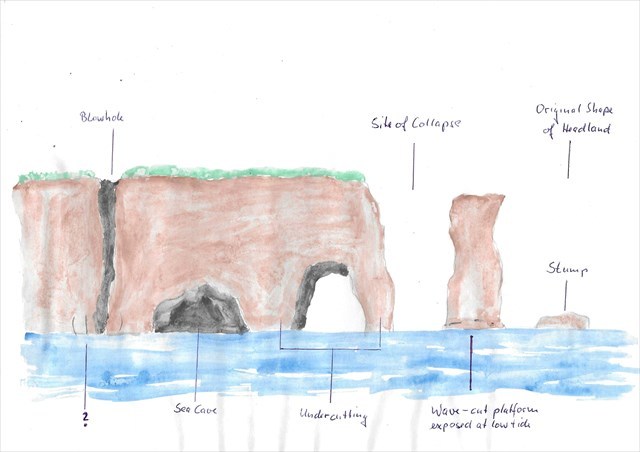 Blowhole
Site of Collapse
Original Shape
of Headland
Stump
?
Sea Cave
Undercutting
Wave-cut platform
exposed at low tide